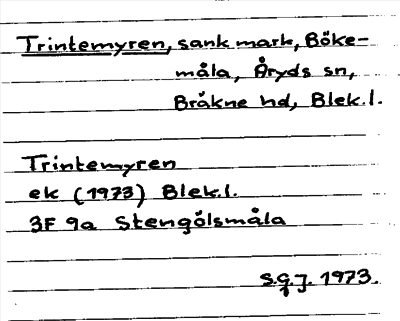 Trintemyren, sank mark, Böke-
måla, Åryds sn,
Bräkne hd, Blek.l.
Trintemyren
ek (1973) Blek.l.
3F 9a Stengölsmåla
S.G.J. 1973.